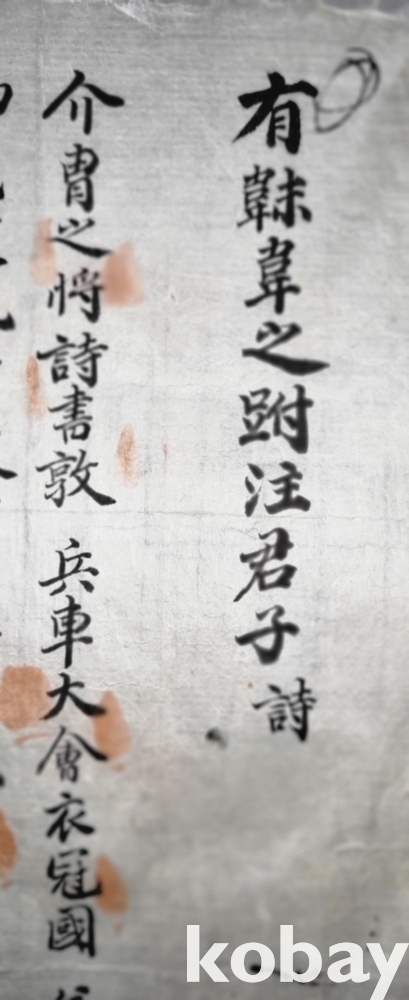 有韎韋之跗注君子詩
介胄之將詩書敦
兵車大會衣冠國
kobay